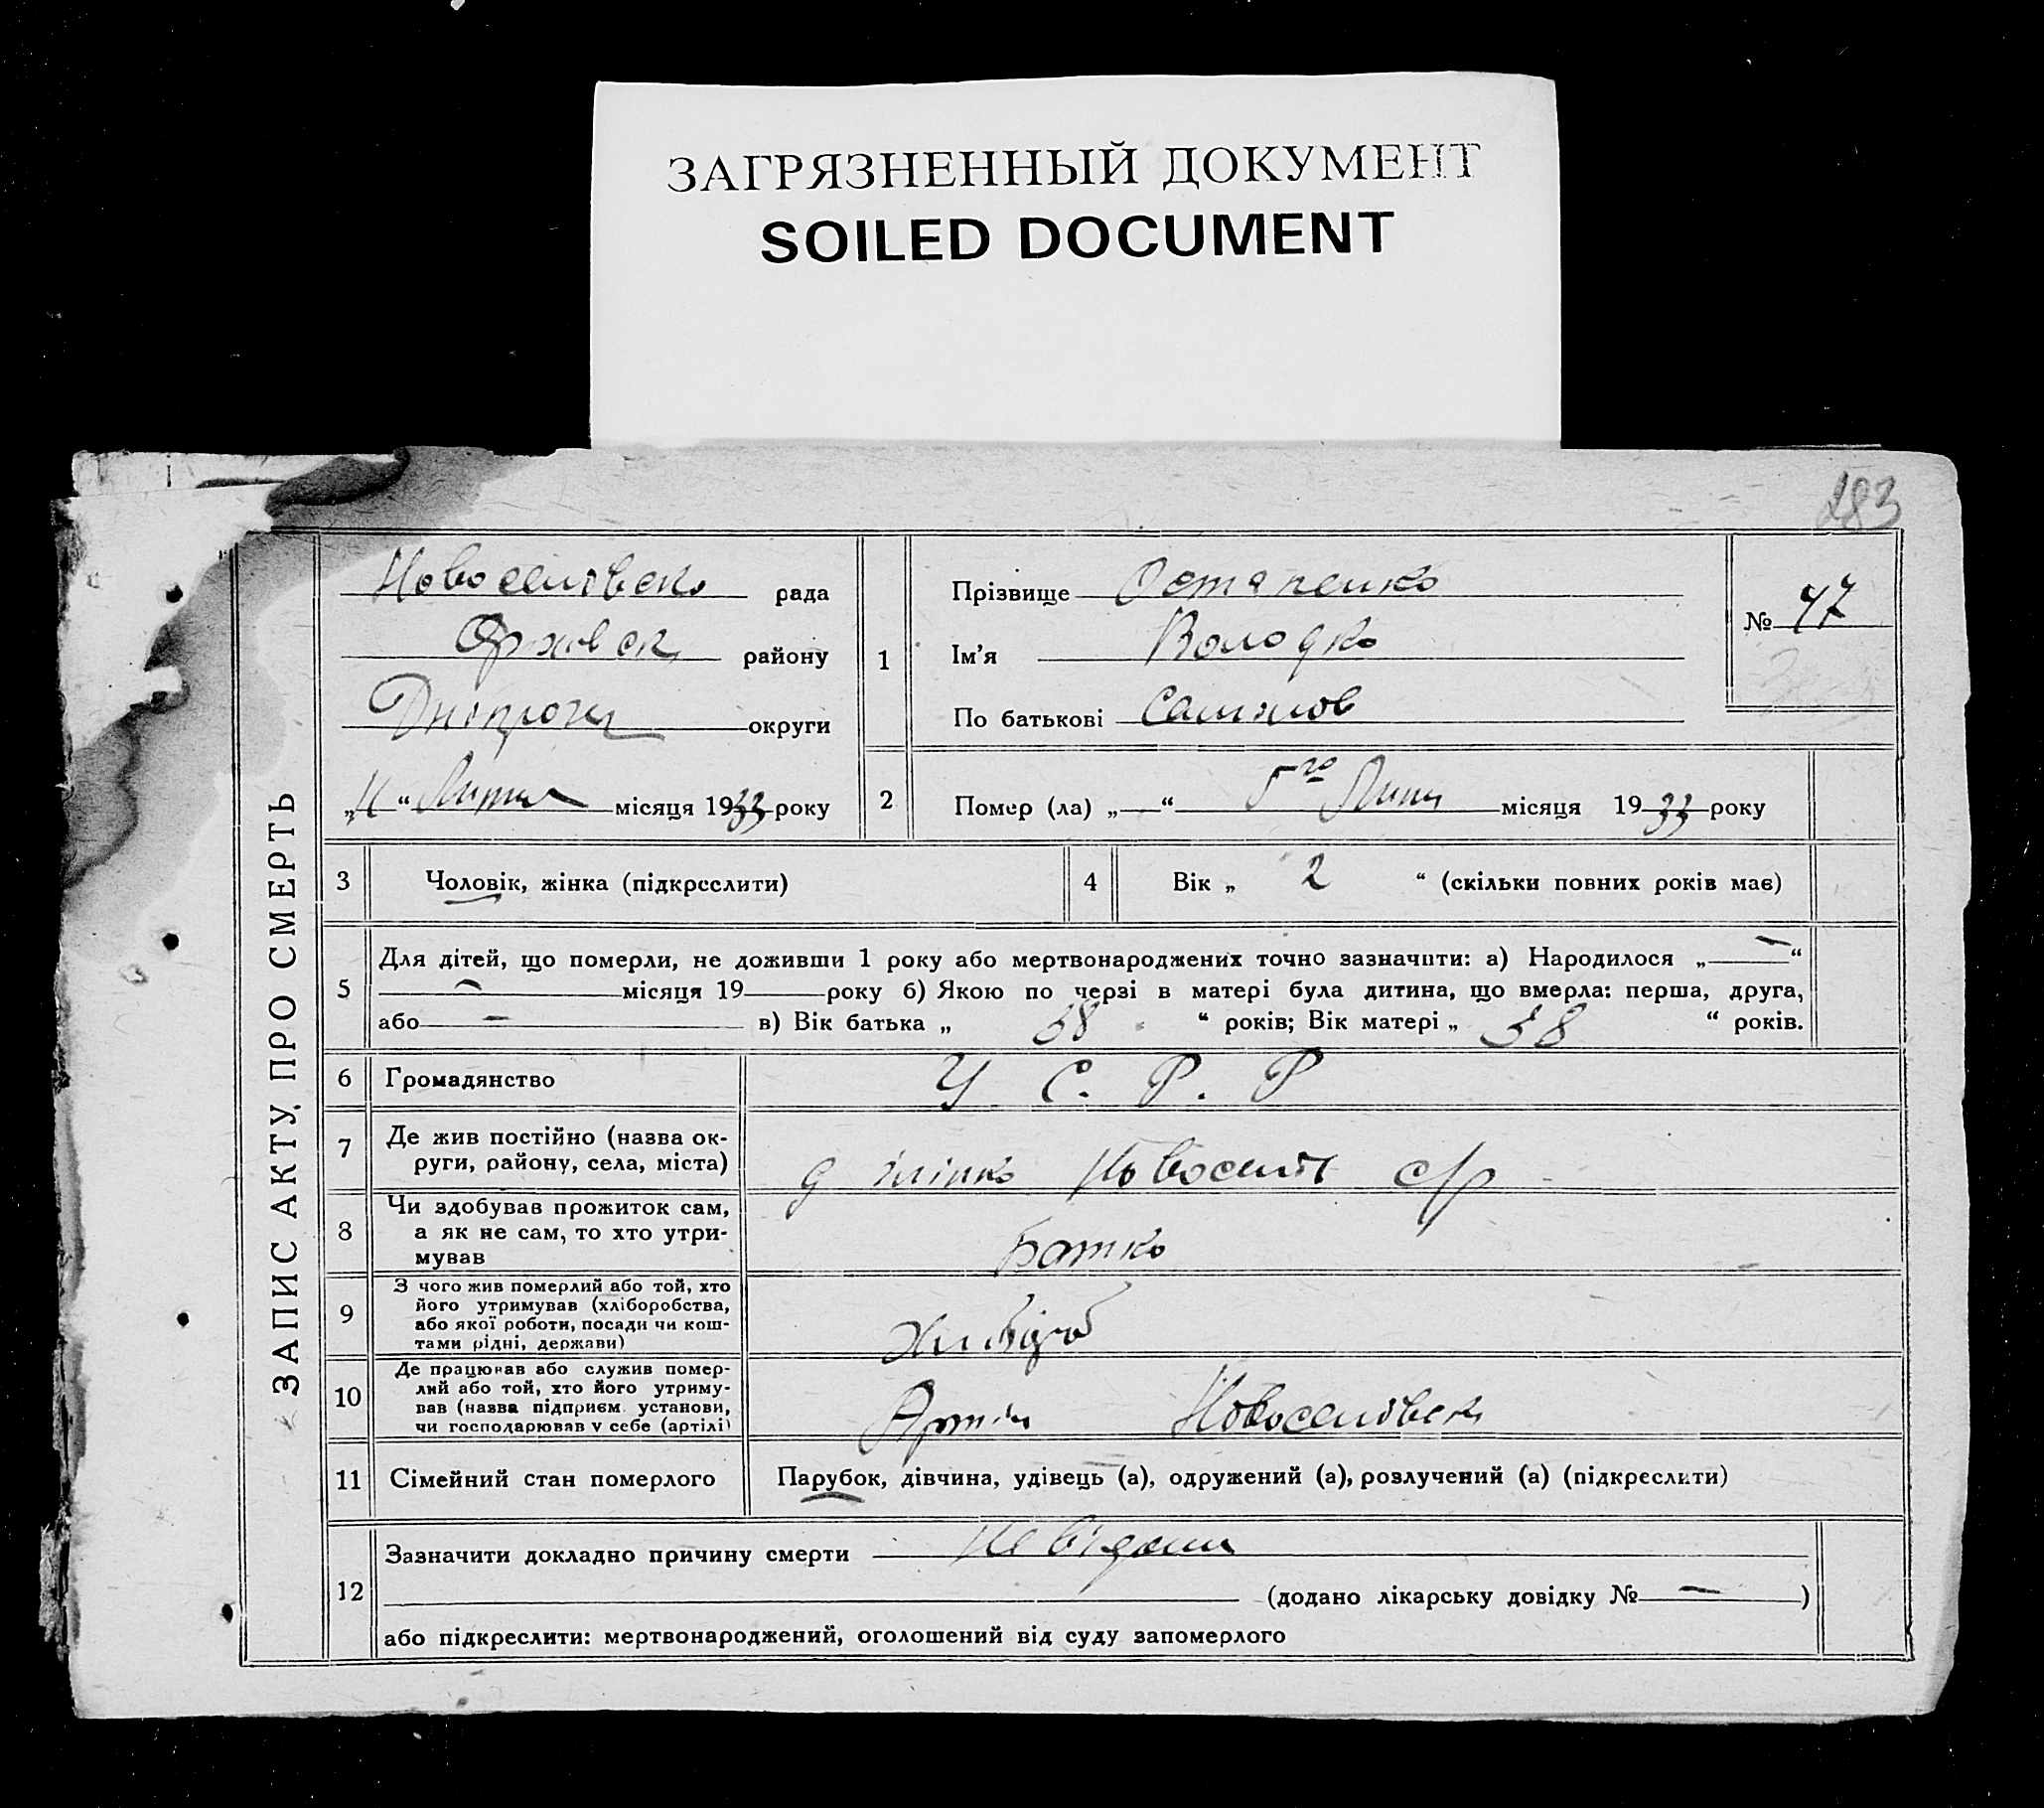 ЗАГРЯЗНЕННЫЙ ДОКУМЕНТ
SOILED DOCUMENT
283
ЗАПИС АКТУ ПРО СМЕРТЬ
Новоселівсько рада
району
округи
„11“ місяця 1933 року
1
Прізвище Остапенко
Ім’я Володко
По батькові
№ 47
2
Помер (ла) „—“ 5го Липн місяця 1933 року
3
Чоловік, жінка (підкреслити)
4
Вік „ 2 “ (скільки повних років має)
5
Для дітей, що померли, не доживши 1 року або мертвонароджених точно зазначити: а) Народилося „—“
— місяця 19 року б) Якою по черзі в матері була дитина, що вмерла: перша, друга,
або — в) Вік батька „ 38 “ років; Вік матері „ 38 “ років.
6
Громадянство
У. С. Р. Р
7
Де жив постійно (назва ок-
руги, району, села, міста)
с/р
8
Чи здобував прожиток сам,
а як не сам, то хто утри-
мував
Батько
9
З чого жив померлий або той, хто
його утримував (хліборобства,
або якої роботи, посади чи кош-
тами рідні, держави)
10
Де працював або служив помер-
лий або той, хто його утриму-
вав (назва підприєм. установи,
чи господарював у себе (артілі)
Новоселівськ
11
Сімейний стан померлого
Парубок, дівчина, удівець (а), одружений (а), розлучений (а) (підкреслити)
12
Зазначити докладно причину смерти Невідома
(додано лікарську довідку № — )
або підкреслити: мертвонароджений, оголошений від суду запомерлого